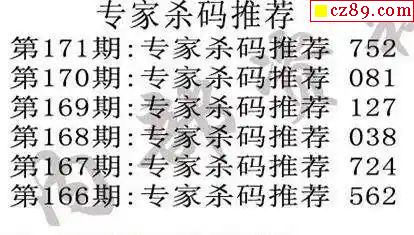 专家杀码推荐
cz89.com
第171期:专家杀码推荐 752
第170期:专家杀码推荐 081
第169期:专家杀码推荐 127
第168期:专家杀码推荐 038
第167期:专家杀码推荐 724
第166期:专家杀码推荐 562